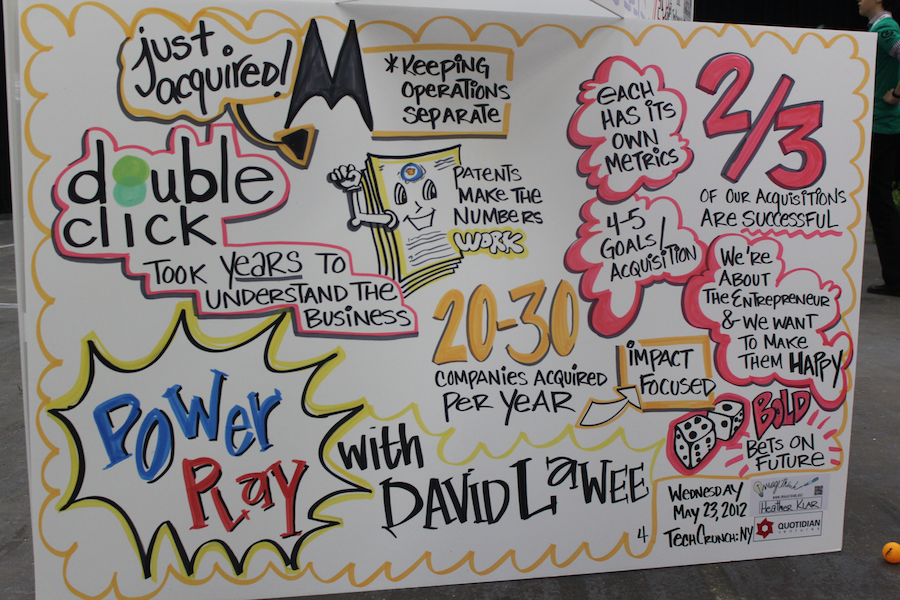 just
acquired!
*KEEPING
OPERATIONS
SEPARATE
double
click
TOOK YEARS TO
UNDERSTAND THE
BUSINESS
PATENTS
MAKE THE
NUMBERS
WORK
EACH
HAS ITS
OWN
METRICS
2/3
OF OUR ACQUISITIONS
ARE SUCCESSFUL
4-5
GOALS/
ACQUISITION
WE'RE
ABOUT
THE ENTREPRENEUR
& WE WANT
TO MAKE
THEM HAPPY
20-30
COMPANIES ACQUIRED
PER YEAR
iMPACT
FOCUSED
BOLD
BETS ON
FUTURE
POWER
PLAY
with
DAVID LaWEE
4
WEDNESDAY
MAY 23, 2012
TECHCRUNCH: NY
HEATHER KLAR
QUOTIDIAN
VENTURES